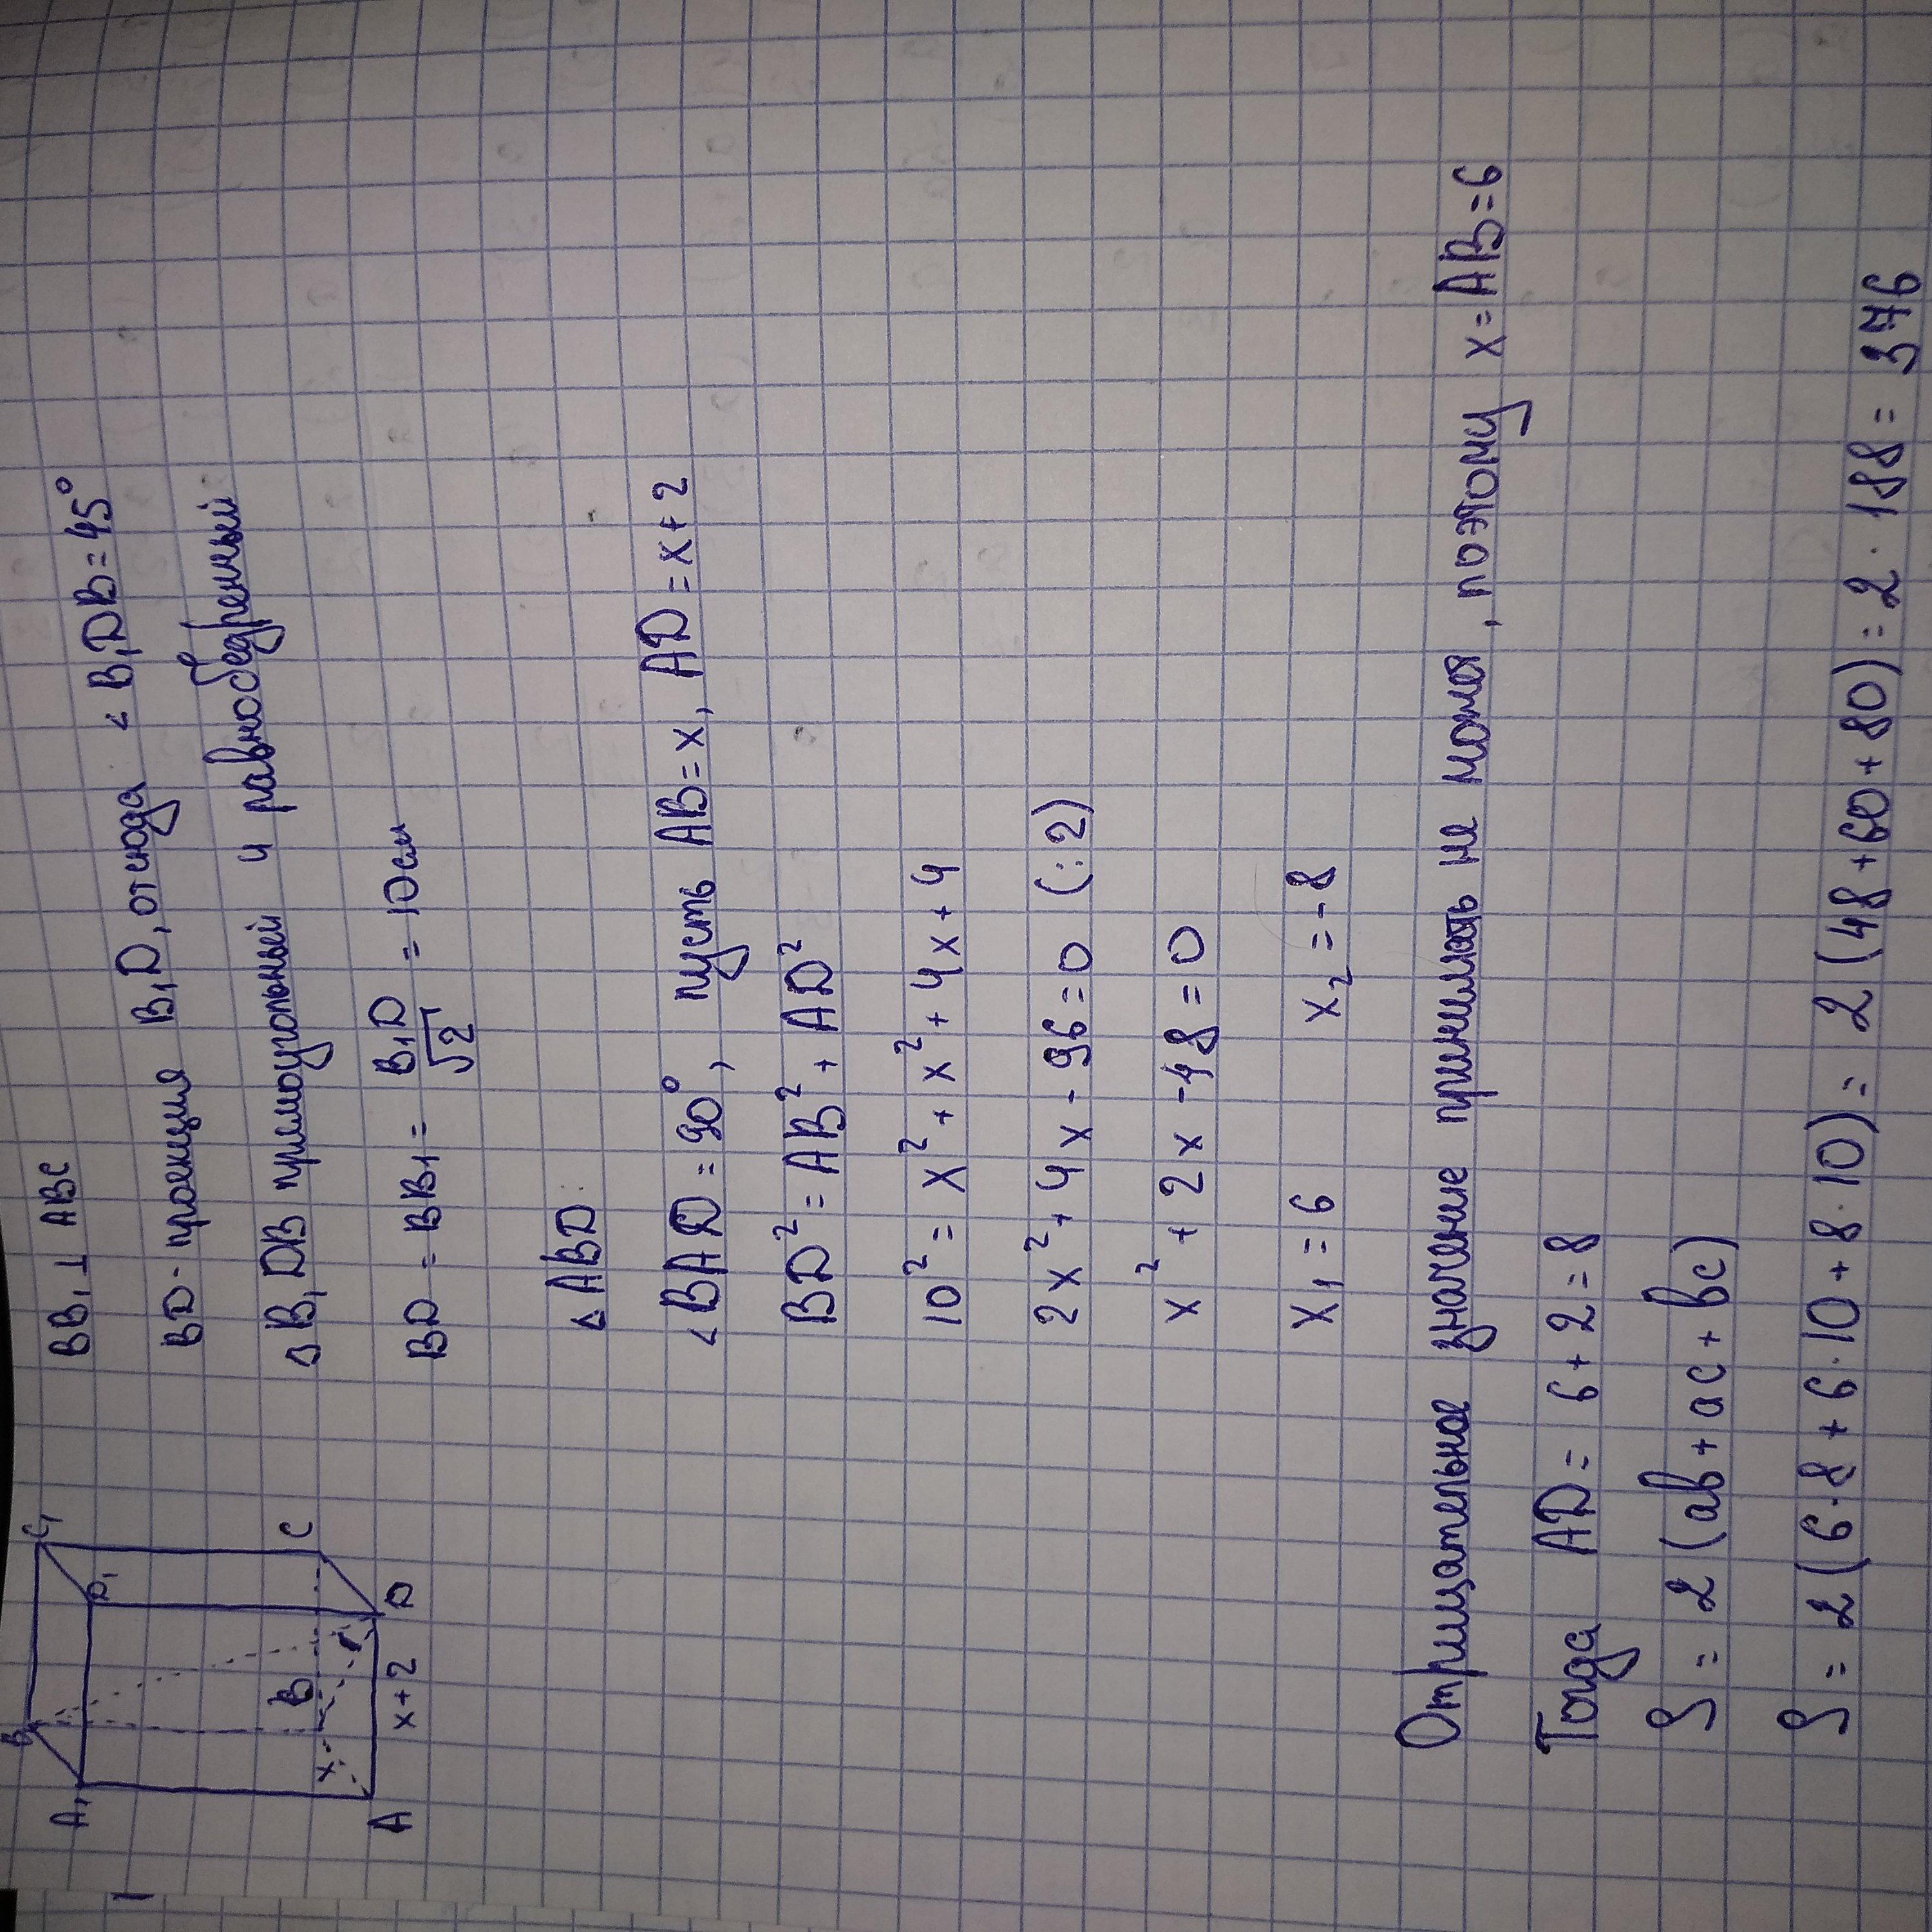 B₁ C₁
A₁ D₁
B C
x
A x+2 D
BB₁ ⊥ ABC
BD - проекция B₁D, отсюда ∠B₁DB=45°
△B₁DB прямоугольный и равнобедренный
BD = BB₁ = B₁D/√2 = 10см
△ABD
∠BAD=90°, пусть AB=x, AD=x+2
BD² = AB² + AD²
10² = x² + x² + 4x + 4
2x² + 4x - 96 = 0 (:2)
x² + 2x - 48 = 0
x₁ = 6 x₂ = -8
Отрицательное значение принимать неможем, поэтому x=AB=6
Тогда AD = 6+2=8
S = 2(ab + ac + bc)
S = 2(6·8 + 6·10 + 8·10) = 2(48+60+80) = 2·188 = 376